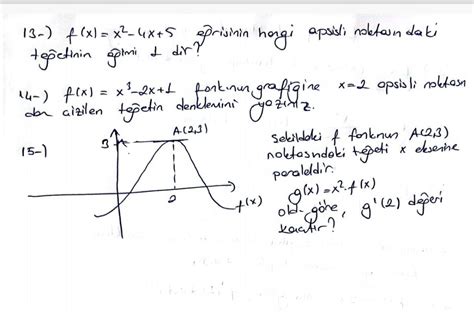 13-) f(x) = x² - 4x + 5 eğrisinin hangi apsisli noktasındaki
teğetinin eğimi 1 dir?
14-) f(x) = x³ - 2x + 1 fonk.nun grafiğine x = 2 apsisli noktasın
dan çizilen teğetin denklemini yazınız.
15-)
3
A(2,3)
2
f(x)
Şekildeki f fonk.nun A(2,3)
noktasındaki teğeti x eksenine
paraleldir.
g(x) = x². f(x)
old. göre, g'(2) değeri
kaçtır?